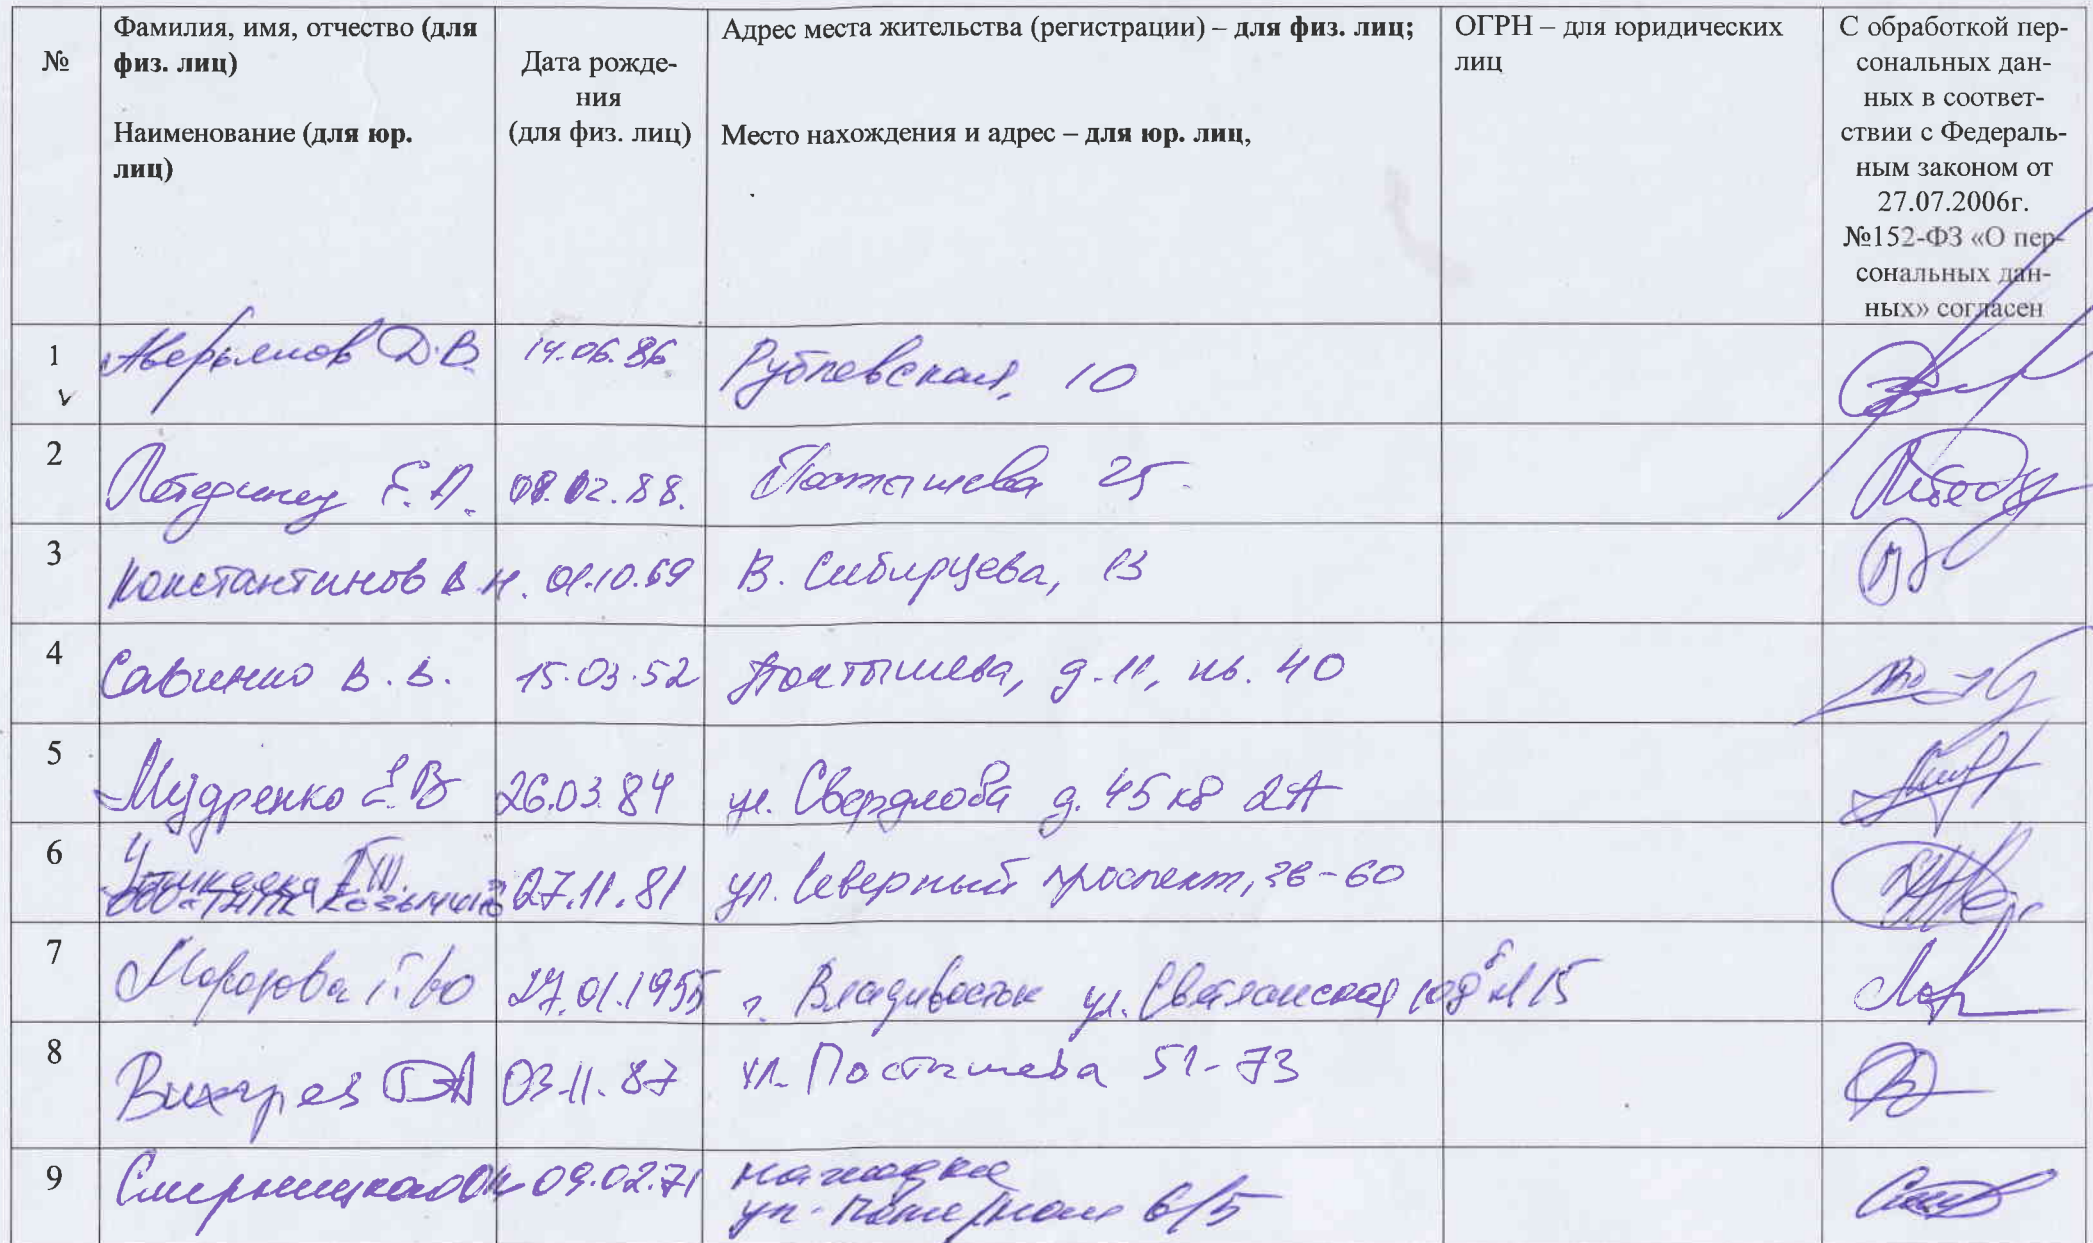 №
Фамилия, имя, отчество (для
физ. лиц)
Наименование (для юр.
лиц)
Дата рожде-
ния
(для физ. лиц)
Адрес места жительства (регистрации) – для физ. лиц;
Место нахождения и адрес – для юр. лиц,
ОГРН – для юридических
лиц
С обработкой пер-
сональных дан-
ных в соответ-
ствии с Федераль-
ным законом от
27.07.2006г.
№152-ФЗ «О пер-
сональных дан-
ных» согласен
1 Аверьянов Д.В. 14.06.86 10
2 Е.А. 08.02.88. Постышева 25
3 Константинов В.Н. 01.10.69 В. Сибирцева, 13
4 Савинко В.В. 15.03.52 Постышева, д.11, кв. 40
5 Мудренко Е.В 26.03.84 ул. Свердлова д. 45 кв 2А
6 27.11.81 ул. Северный проспект, 28-60
7 Морозова Г.Ю 27.01.1955 г. Владивосток ул. Светланская
8 Вихарев 03.11.87 ул. Постышева 51-73
9 09.02.71 Находка
ул. 6/5